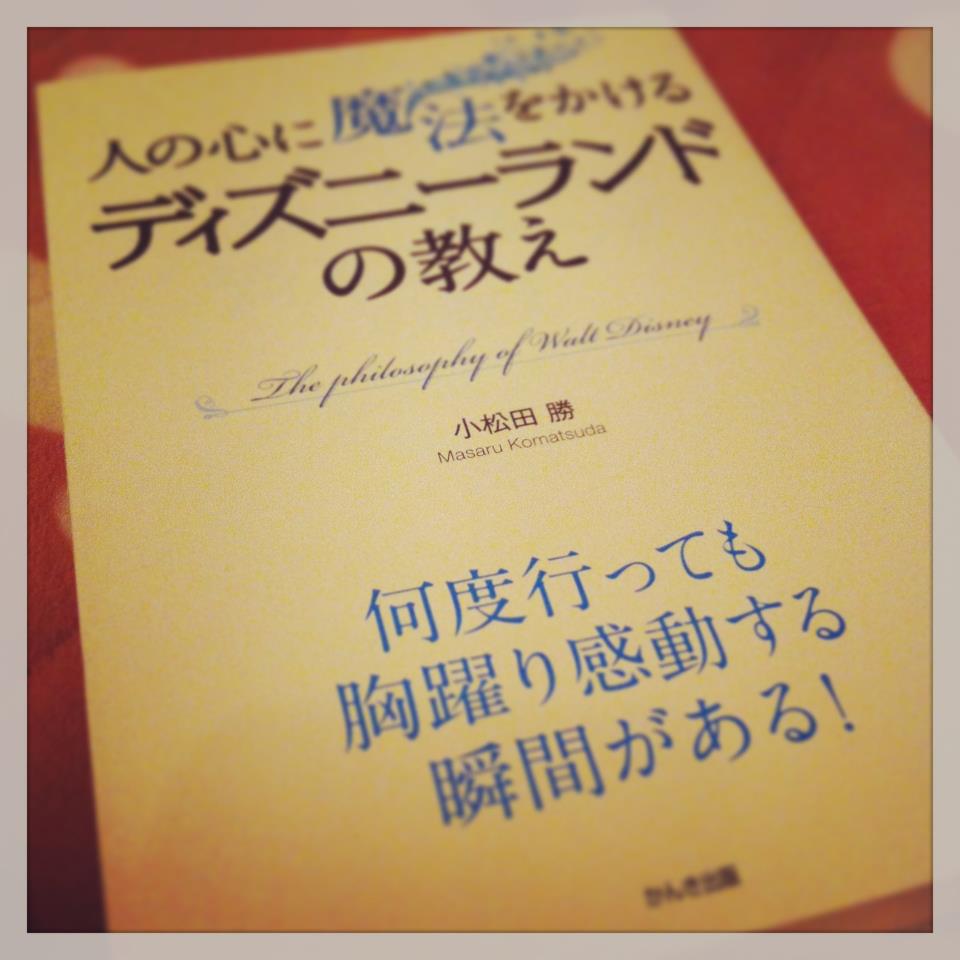 人の心に魔法をかける
ディズニーランド
の教え
The philosophy of Walt Disney
小松田 勝
Masaru Komatsuda
何度行っても
胸躍り感動する
瞬間がある!
かんき出版